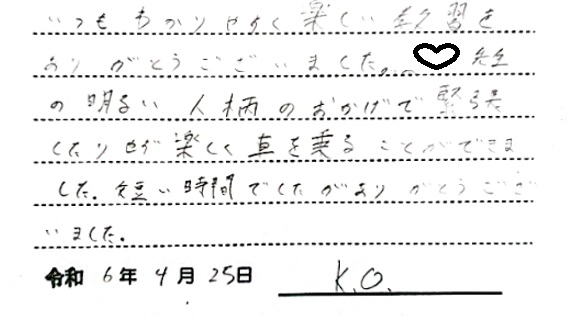 いつもわかりやすく楽しい教習を
ありがとうございました。♡先生
の明るい人柄のおかげで緊張
したりせず楽しく車を乗ることができま
した。短い時間でしたがありがとうござ
いました。
令和 6年 4月 25日 K.O.